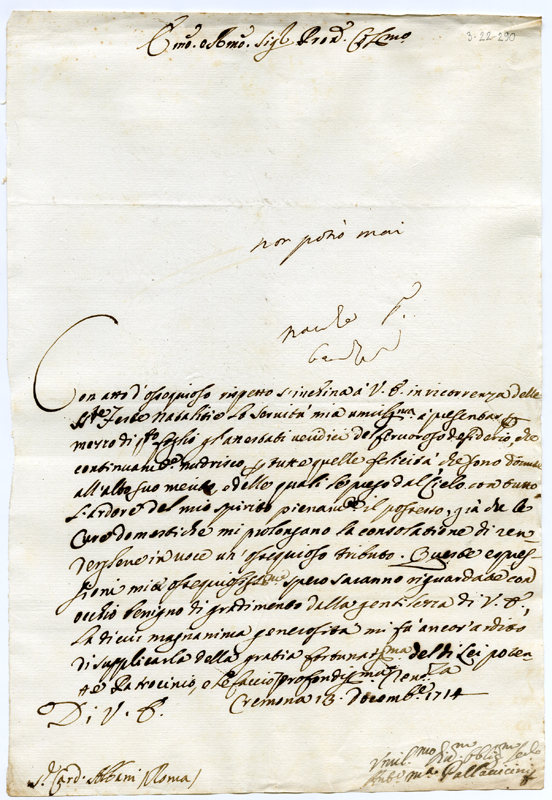 Emo. e Rmo. Sigr. Pron. Colmo.
3-22-290
non potrò mai
Con atto d'ossequioso rispetto s'inchina à V. E. in ricorrenza delle
Ste Feste Natalitie la servitù mia umilissma à presentar
mezzo di sto foglio gl'inesbati veridici del fervoroso desiderio, che
continuamte nudrisco, p tutte quelle felicità che sono dovute
all'alto suo merito, e delle quali le prego dal Cielo con tutto
l'ardore del mio spirito pienamte il possesso, già che le
Cure domestiche mi prolongano la consolatione di ren
dergliene in voce un ossequioso tributo. Queste espres
sioni mie ossequiosissme spero saranno riguardate con
occhio benigno di gradimento dalla gentilezza di V. E.,
la di cui magnanima generosità mi fà ancor ardito
di supplicarla della gratia fortunatissma del di Lei poten
te Patrocinio, e le faccio profondissma River.za
Di V. E. Cremona 13. Dicembre. 1714
Sr. Card. Albani (Roma)
Umil.mo Div.mo Oblig.mo Serv.
Ant. Ma. Pallavicini